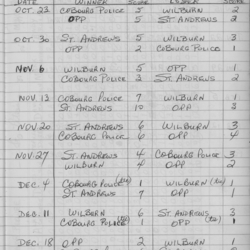 DATE WINNER SCORE LOSER SCORE
OCT. 23 COBOURG POLICE 5 WILBURN 1
OPP 5 ST. ANDREWS 2
OCT. 30 ST. ANDREWS 5 WILBURN 3
OPP 2 COBOURG POLICE 1
NOV. 6 WILBURN 5 OPP 1
COBOURG POLICE 3 ST. ANDREWS 2
NOV. 13 COBOURG POLICE 7 WILBURN 1
ST. ANDREWS 10 OPP 3
NOV. 20 ST. ANDREWS 6 WILBURN 3
COBOURG POLICE 6 OPP 4
NOV. 27 ST. ANDREWS 4 COBOURG POLICE 3
WILBURN 4 OPP 2
DEC. 4 COBOURG POLICE (tie) 1 WILBURN (tie) 1
ST. ANDREWS 7 OPP 1
DEC. 11 WILBURN 6 ST. ANDREWS 3
COBOURG POLICE (tie) 1 OPP (tie) 1
DEC. 18 OPP 2 WILBURN 1